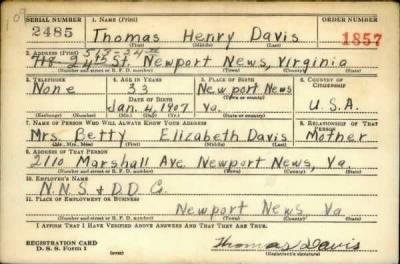 SERIAL NUMBER 1. NAME (Print) ORDER NUMBER
2485 Thomas Henry Davis 1857
(First) (Middle) (Last)
2. ADDRESS (Print) 513-34th
St. Newport News, Virginia
(Number and street or R. F. D. number) (Town) (County) (State)
3. TELEPHONE 4. AGE IN YEARS 5. PLACE OF BIRTH 6. COUNTRY OF CITIZENSHIP
None 33 Newport News
DATE OF BIRTH (Town or county)
Jan. 4, 1907 Va. U.S.A.
(Exchange) (Number) (Mo.) (Day) (Yr.) (State or country)
7. NAME OF PERSON WHO WILL ALWAYS KNOW YOUR ADDRESS 8. RELATIONSHIP OF THAT PERSON
Mrs. Betty Elizabeth Davis Mother
(Mr., Mrs., Miss) (First) (Middle) (Last)
9. ADDRESS OF THAT PERSON
2110 Marshall Ave. Newport News, Va.
(Number and street or R. F. D. number) (Town) (County) (State)
10. EMPLOYER'S NAME
N.N.S. & D.D. Co.
11. PLACE OF EMPLOYMENT OR BUSINESS
Newport News, Va
(Number and street or R. F. D. number) (Town) (County) (State)
I AFFIRM THAT I HAVE VERIFIED ABOVE ANSWERS AND THAT THEY ARE TRUE.
REGISTRATION CARD
D. S. S. Form 1 Thomas Davis
(Registrant's signature)